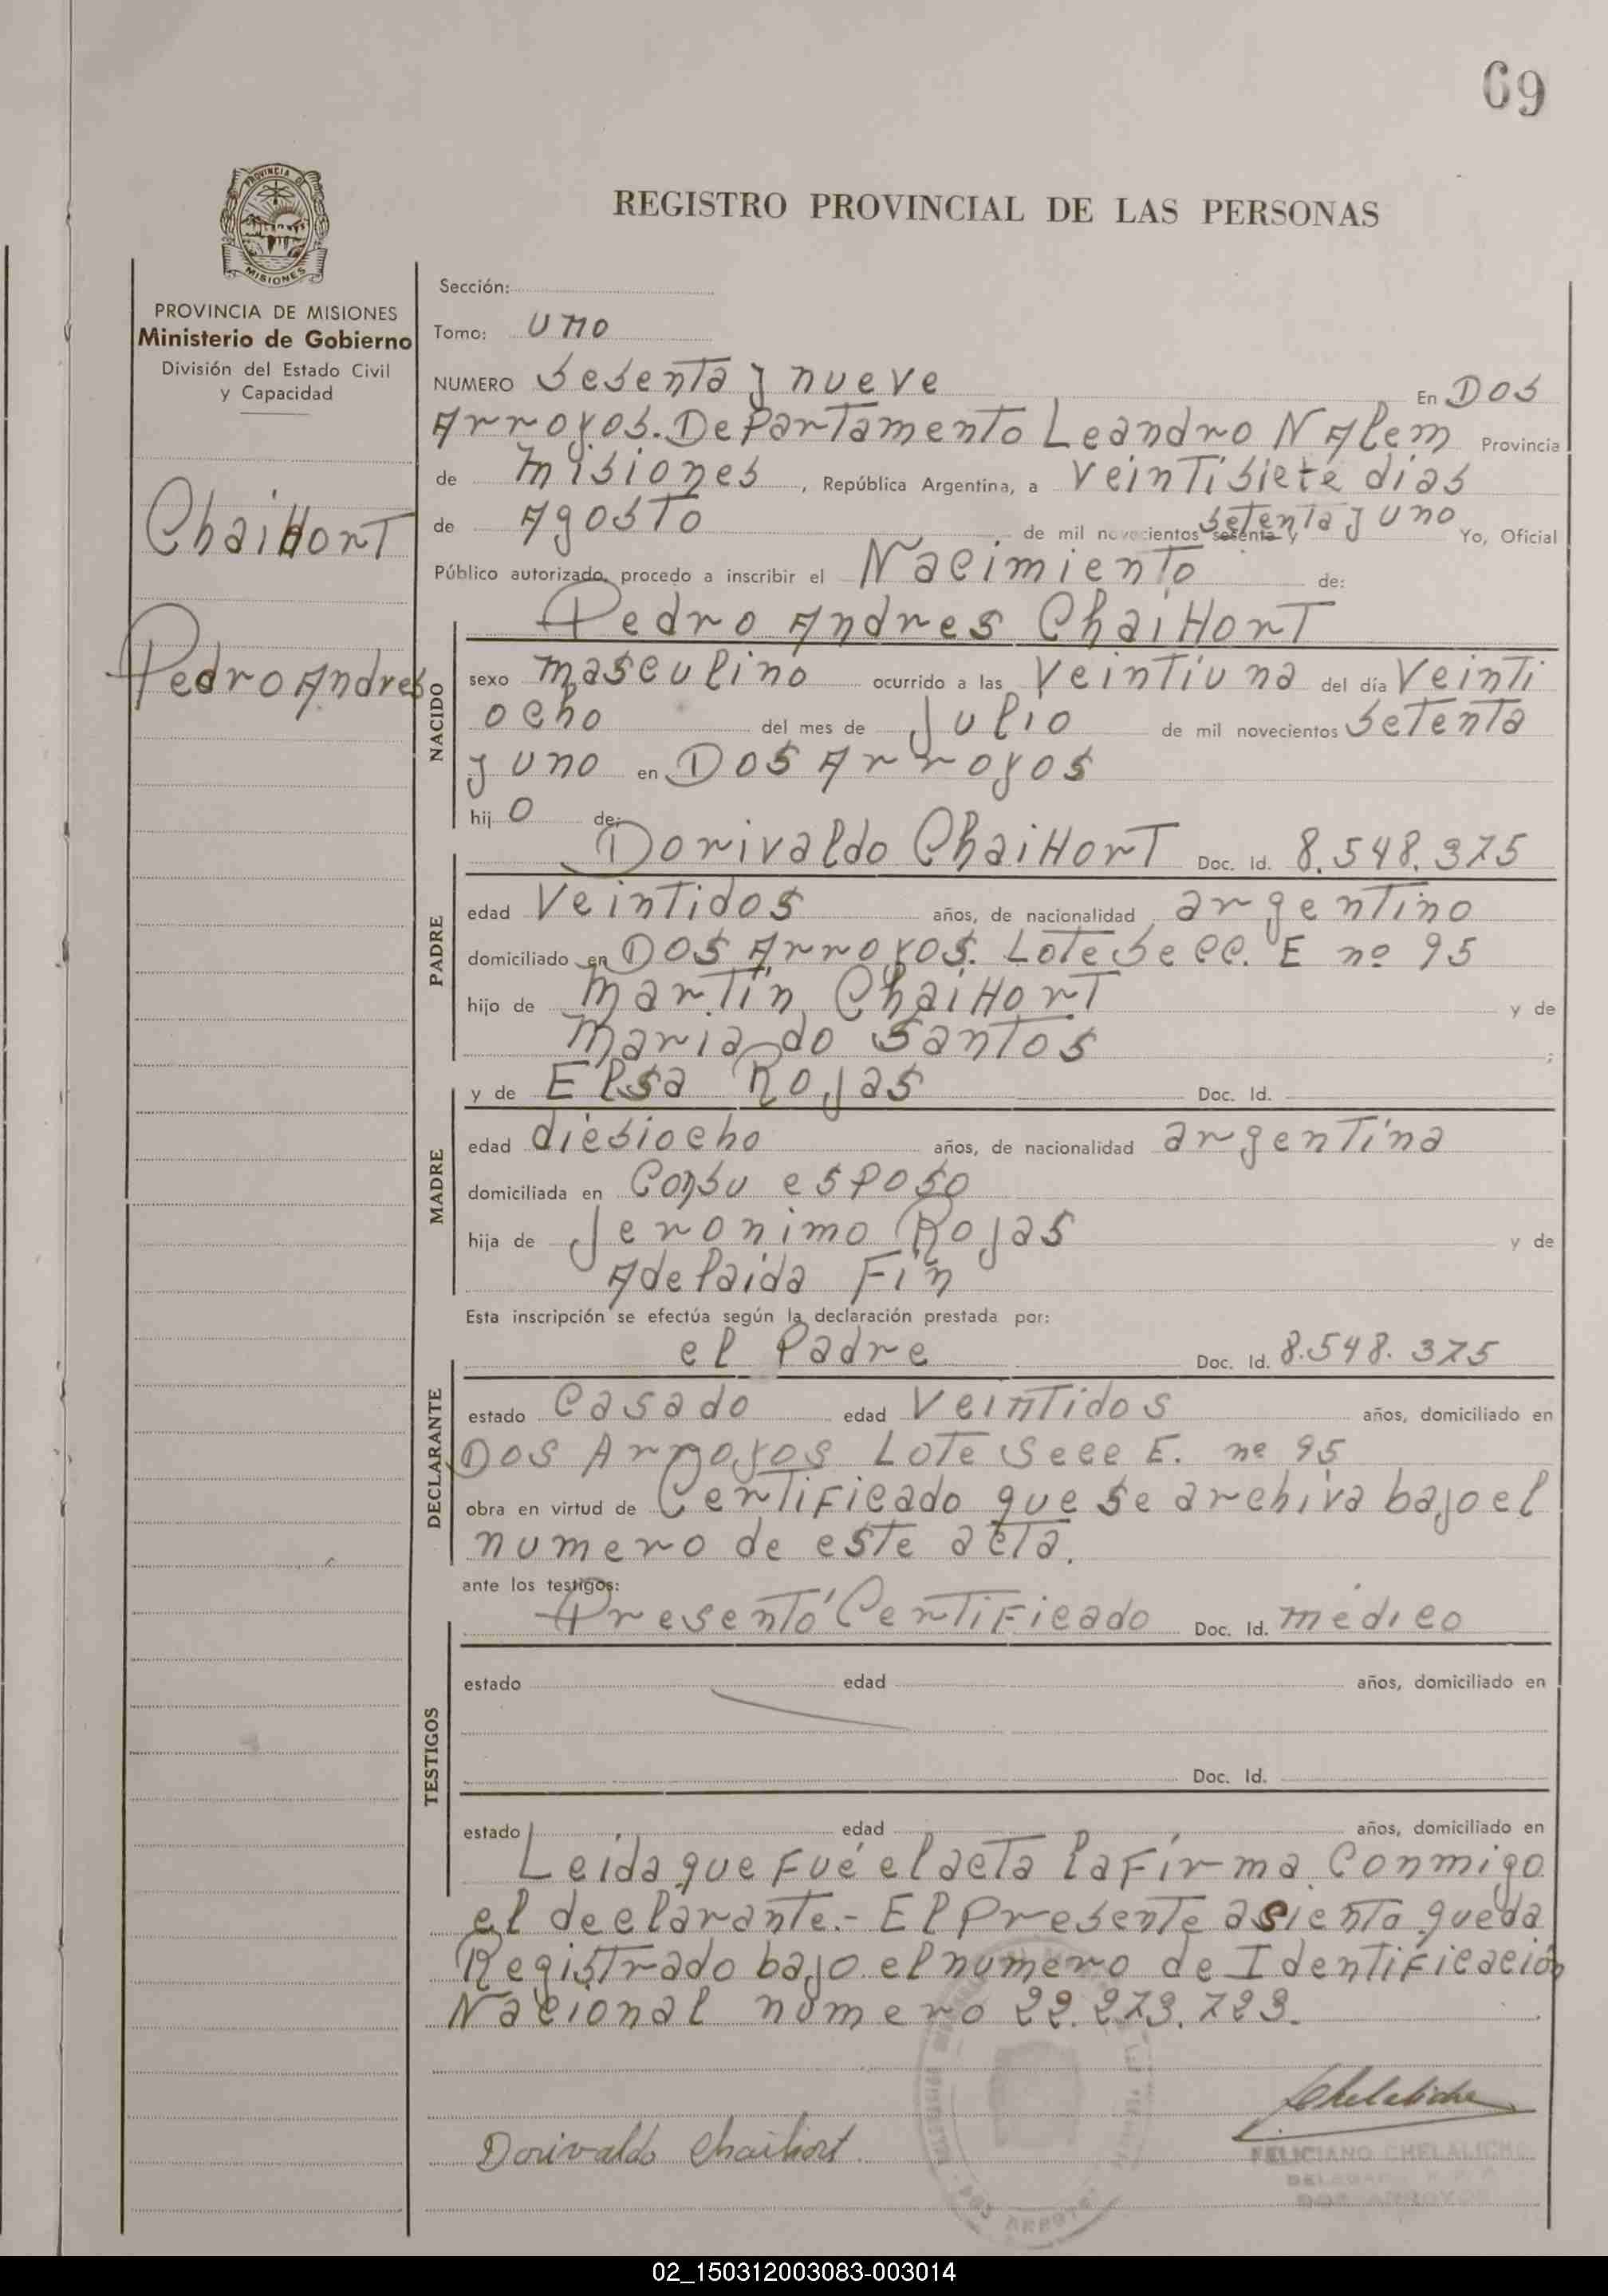 69
PROVINCIA DE
MISIONES
REGISTRO PROVINCIAL DE LAS PERSONAS
PROVINCIA DE MISIONES
Ministerio de Gobierno
División del Estado Civil
y Capacidad
ChaiHorT
Pedro Andres
Sección:
Tomo: uno
NUMERO Sesenta y nueve En Dos
Arroyos. Departamento Leandro N Alem Provincia
de Misiones, República Argentina, a veintisiete dias
de Agosto de mil novecientos sesenta y setenta y uno Yo, Oficial
Público autorizado, procedo a inscribir el Nacimiento de:
Pedro Andres ChaiHorT
NACIDO
sexo masculino ocurrido a las veintiuna del día veinti
ocho del mes de Julio de mil novecientos setenta
y uno en Dos Arroyos
hij o de:
PADRE
Dorivaldo ChaiHorT Doc. Id. 8.548.375
edad veintidos años, de nacionalidad argentino
domiciliado en Dos Arroyos. Lote Secc. E nº 95
hijo de Martín ChaiHorT y de
Maria do Santos ;
MADRE
y de Elsa Rojas Doc. Id.
edad diesiocho años, de nacionalidad argentina
domiciliada en Con su esposo
hija de Jeronimo Rojas y de
Adelaida Fin
Esta inscripción se efectúa según la declaración prestada por:
DECLARANTE
el Padre Doc. Id. 8.548.375
estado Casado edad veintidos años, domiciliado en
Dos Arroyos Lote Secc E. nº 95
obra en virtud de Certificado que se archiva bajo el
numero de este acta.
ante los testigos:
TESTIGOS
Presentó Certificado Doc. Id. médico
estado edad años, domiciliado en
Doc. Id.
estado edad años, domiciliado en
Leída que fué el acta la fírma conmigo
el declarante.- El presente asiento queda
Registrado bajo el numero de Identificación
Nacional número 22.273.723.
Dorivaldo Chaihort
Chelaliche
FELICIANO CHELALICHE
DOS ARROYOS
02_150312003083-003014